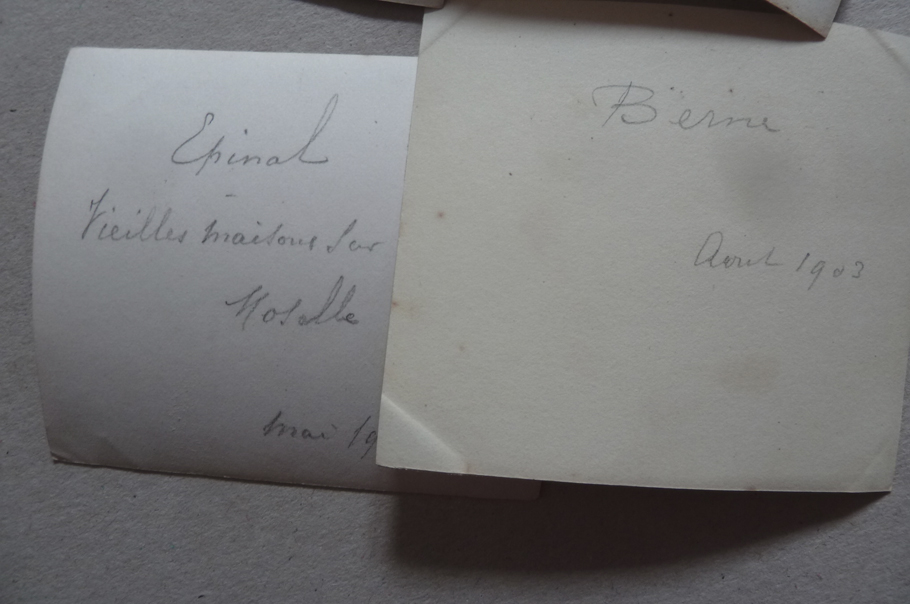 Epinal
Vieilles maisons sur
Moselle
mai 19
Berne
Aout 1903